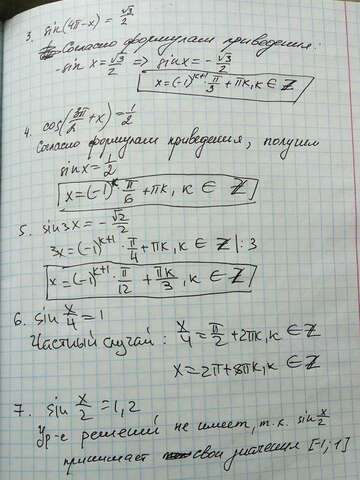 3. sin(4π-x) = √3/2
Согласно формулам приведения:
-sin x = √3/2 => sinx = -√3/2
x = (-1)^(k+1) π/3 + πk, k ∈ Z
4. cos(3π/2 + x) = 1/2
Согласно формулам приведения, получим
sinx = 1/2
x = (-1)^k · π/6 + πk, k ∈ Z
5. sin3x = -√2/2
3x = (-1)^(k+1) · π/4 + πk, k ∈ Z | : 3
x = (-1)^(k+1) · π/12 + πk/3, k ∈ Z
6. sin x/4 = 1
Частный случай: x/4 = π/2 + 2πk, k ∈ Z
x = 2π + 8πk, k ∈ Z
7. sin x/2 = 1,2
Ур-е решений не имеет, т.к. sin x/2
принимает свои значения [-1; 1]